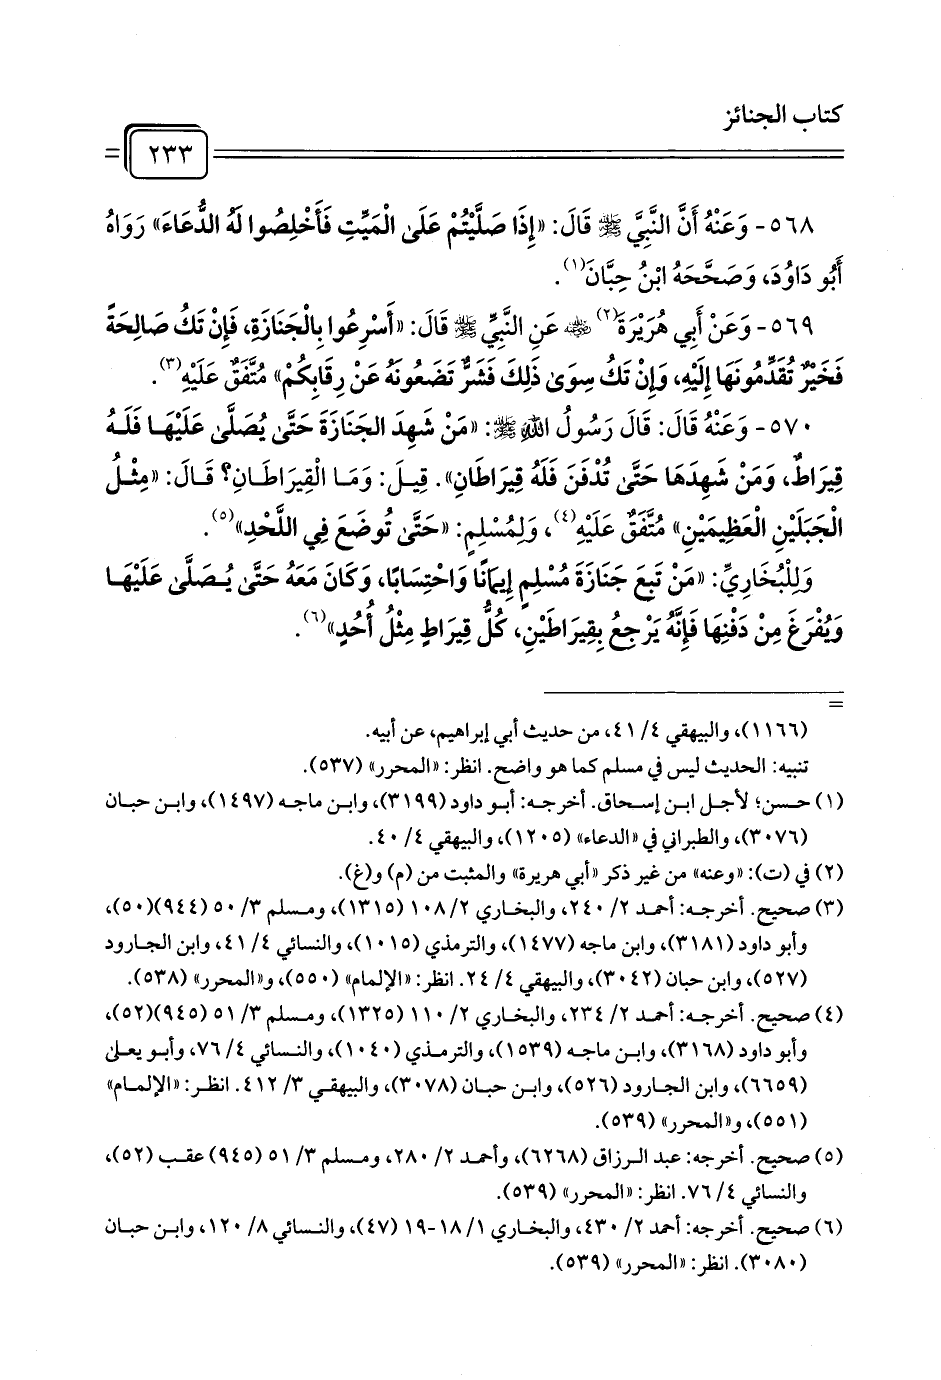 كتاب الجنائز
٢٣٣
٥٦٨- وَعَنْهُ أَنَّ النَّبِيَّ ﷺ قَالَ: «إِذَا صَلَّيْتُمْ عَلَى الْمَيِّتِ فَأَخْلِصُوا لَهُ الدُّعَاءَ» رَوَاهُ
أَبُو دَاوُدَ، وَصَحَّحَهُ ابْنُ حِبَّانَ(١).
٥٦٩- وَعَنْ أَبِي هُرَيْرَةَ(٢) ﷺ عَنِ النَّبِيِّ ﷺ قَالَ: «أَسْرِعُوا بِالْجَنَازَةِ، فَإِنْ تَكُ صَالِحَةً
فَخَيْرٌ تُقَدِّمُونَهَا إِلَيْهِ، وَإِنْ تَكُ سِوَى ذَلِكَ فَشَرٌّ تَضَعُونَهُ عَنْ رِقَابِكُمْ» مُتَّفَقٌ عَلَيْهِ(٣).
٥٧٠- وَعَنْهُ قَالَ: قَالَ رَسُولُ اللهِ ﷺ: «مَنْ شَهِدَ الجَنَازَةَ حَتَّى يُصَلَّى عَلَيْهَا فَلَهُ
قِيرَاطٌ، وَمَنْ شَهِدَهَا حَتَّى تُدْفَنَ فَلَهُ قِيرَاطَانِ». قِيلَ: وَمَا الْقِيرَاطَانِ؟ قَالَ: «مِثْلُ
الْجَبَلَيْنِ الْعَظِيمَيْنِ» مُتَّفَقٌ عَلَيْهِ(٤)، وَلِمُسْلِمٍ: «حَتَّى تُوضَعَ فِي اللَّحْدِ»(٥).
وَلِلْبُخَارِيِّ: «مَنْ تَبِعَ جَنَازَةَ مُسْلِمٍ إِيمَانًا وَاحْتِسَابًا، وَكَانَ مَعَهُ حَتَّى يُصَلَّى عَلَيْهَا
وَيُفْرَغَ مِنْ دَفْنِهَا فَإِنَّهُ يَرْجِعُ بِقِيرَاطَيْنِ، كُلُّ قِيرَاطٍ مِثْلُ أُحُدٍ»(٦).
=
(١١٦٦)، والبيهقي ٤/ ٤١، من حديث أبي إبراهيم، عن أبيه.
تنبيه: الحديث ليس في مسلم كما هو واضح. انظر: «المحرر» (٥٣٧).
(١) حسن؛ لأجل ابن إسحاق. أخرجه: أبو داود (٣١٩٩)، وابن ماجه (١٤٩٧)، وابن حبان
(٣٠٧٦)، والطبراني في «الدعاء» (١٢٠٥)، والبيهقي ٤/ ٤٠.
(٢) في (ت): «وعنه» من غير ذكر «أبي هريرة» والمثبت من (م) و(غ).
(٣) صحيح. أخرجه: أحمد ٢/ ٢٤٠، والبخاري ٢/ ١٠٨ (١٣١٥)، ومسلم ٣/ ٥٠ (٩٤٤)(٥٠)،
وأبو داود (٣١٨١)، وابن ماجه (١٤٧٧)، والترمذي (١٠١٥)، والنسائي ٤/ ٤١، وابن الجارود
(٥٢٧)، وابن حبان (٣٠٤٢)، والبيهقي ٤/ ٢٤. انظر: «الإلمام» (٥٥٠)، و«المحرر» (٥٣٨).
(٤) صحيح. أخرجه: أحمد ٢/ ٢٣٤، والبخاري ٢/ ١١٠ (١٣٢٥)، ومسلم ٣/ ٥١ (٩٤٥)(٥٢)،
وأبو داود (٣١٦٨)، وابن ماجه (١٥٣٩)، والترمذي (١٠٤٠)، والنسائي ٤/ ٧٦، وأبو يعلى
(٦٦٥٩)، وابن الجارود (٥٢٦)، وابن حبان (٣٠٧٨)، والبيهقي ٣/ ٤١٢. انظر: «الإلمام»
(٥٥١)، و«المحرر» (٥٣٩).
(٥) صحيح. أخرجه: عبد الرزاق (٦٢٦٨)، وأحمد ٢/ ٢٨٠، ومسلم ٣/ ٥١ (٩٤٥) عقب (٥٢)،
والنسائي ٤/ ٧٦. انظر: «المحرر» (٥٣٩).
(٦) صحيح. أخرجه: أحمد ٢/ ٤٣٠، والبخاري ١/ ١٨-١٩ (٤٧)، والنسائي ٨/ ١٢٠، وابن حبان
(٣٠٨٠). انظر: «المحرر» (٥٣٩).